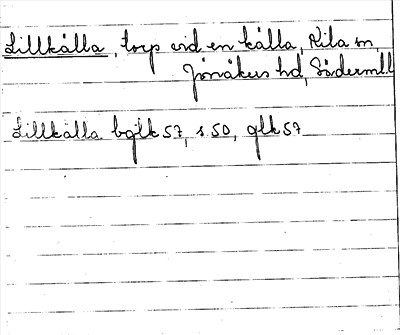 Lillkälla, torp vid en källa, Kila sn,
Jönåkers hd, Söderml.
Lillkälla bglk 57, s. 50, glk 57